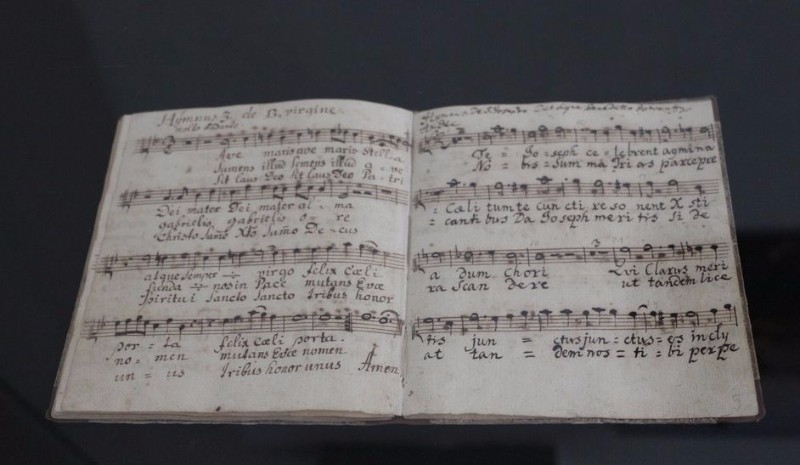 Hymnus 3. de B. virgine
Ave maris ave maris Stella
Sumens illud Sumens illud a = ve
Sit Laus Deo Sit Laus Deo Pa = tri
Dei mater Dei mater al = ma
gabrielis gabrielis o = re
Christo Sum̃o Xto Sum̃o De = cus
atque Semper virgo felix Cœli
funda nos in Pace mutans Evæ
Spiritui Sancto Sancto Tribus honor
por = ta felix Cœli porta.
no = men mutans Evæ nomen
un = us Tribus honor unus Amen
Hymnus De S. Josepho
Te = Jo = seph ce = lebrent agmina
No = bis = Sum̃a Tri as par ce pre
= Cæli tum te cun cti re so nent X sti
= canti bus Da Joseph me ri tis Si de
a Dum Chori 3 Qvi Clarus meri
ra Scan De re ut tandem lice
tis jun = ctus jun = ctus = es in cly
at tan = dem nos = ti = bi per pe